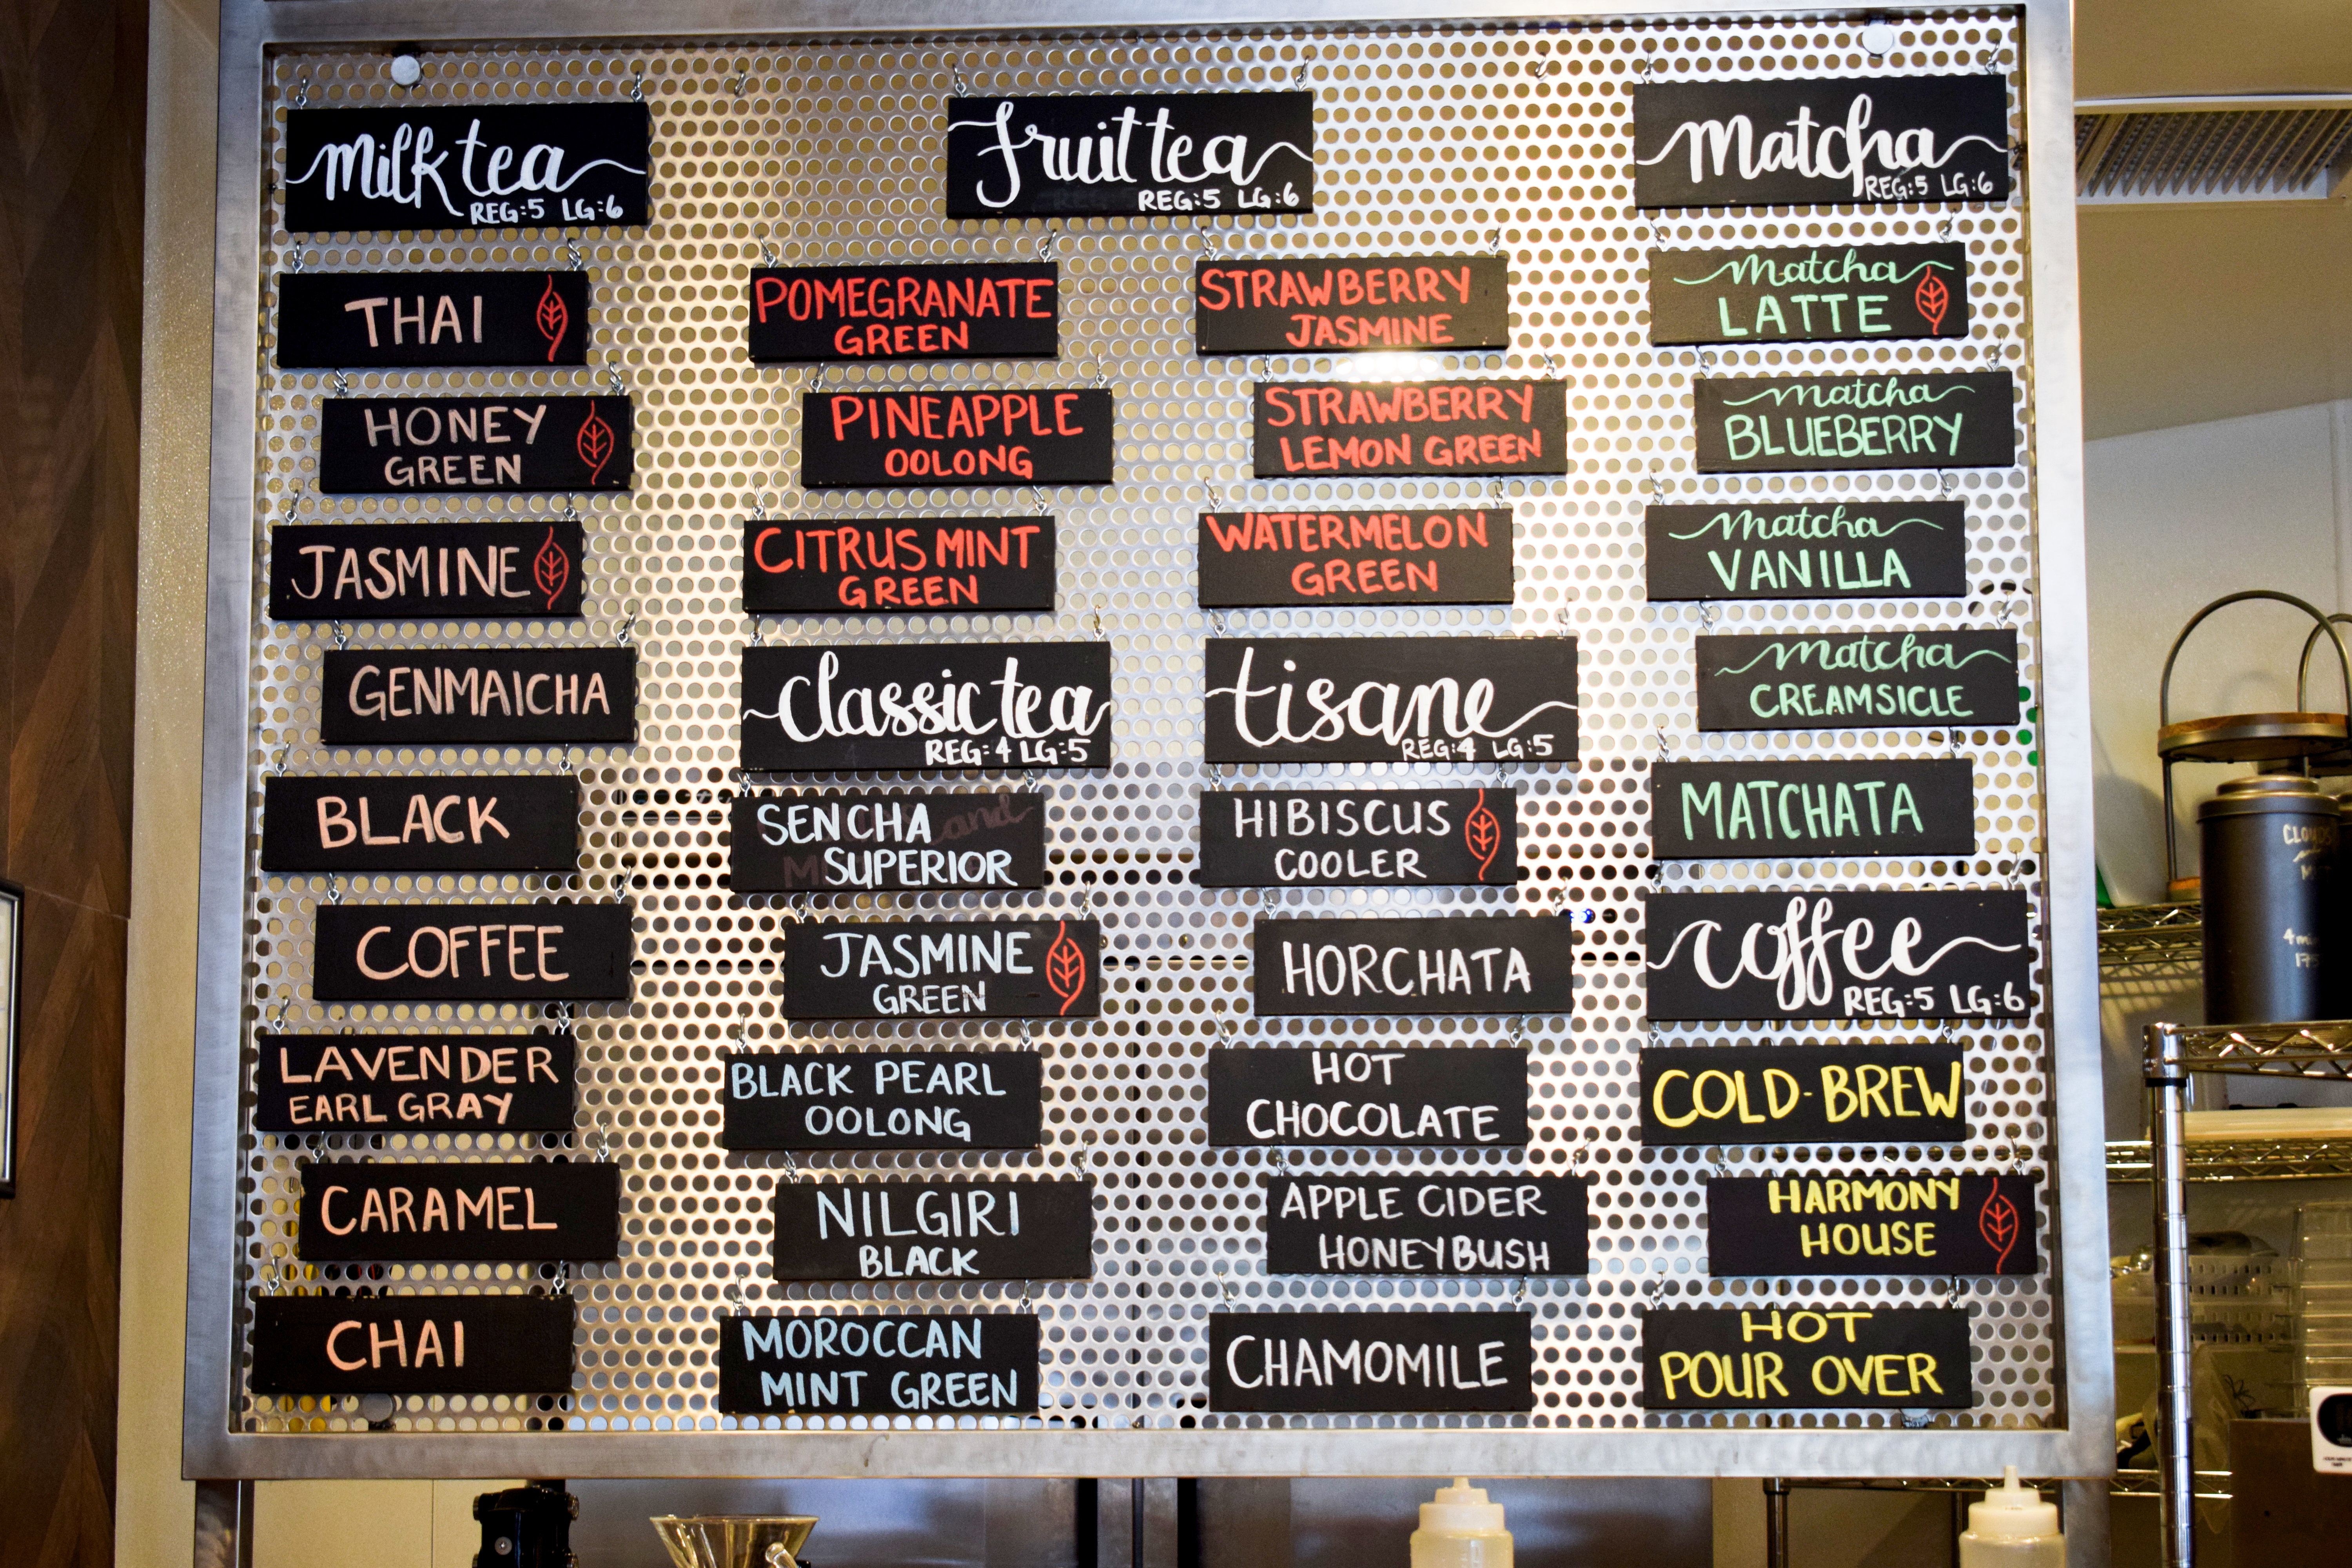 milk tea
REG:5 LG:6
THAI
HONEY
GREEN
JASMINE
GENMAICHA
BLACK
COFFEE
LAVENDER
EARL GRAY
CARAMEL
CHAI
fruit tea
REG:5 LG:6
POMEGRANATE
GREEN
PINEAPPLE
OOLONG
CITRUS MINT
GREEN
STRAWBERRY
JASMINE
STRAWBERRY
LEMON GREEN
WATERMELON
GREEN
classic tea
REG:4 LG:5
SENCHA
SUPERIOR
JASMINE
GREEN
BLACK PEARL
OOLONG
NILGIRI
BLACK
MOROCCAN
MINT GREEN
tisane
REG:4 LG:5
HIBISCUS
COOLER
HORCHATA
HOT
CHOCOLATE
APPLE CIDER
HONEYBUSH
CHAMOMILE
Matcha
REG:5 LG:6
Matcha
LATTE
matcha
BLUEBERRY
Matcha
VANILLA
Matcha
CREAMSICLE
MATCHATA
coffee
REG:5 LG:6
COLD-BREW
HARMONY
HOUSE
HOT
POUR OVER